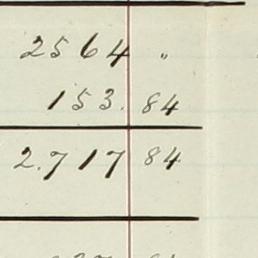 2564 "
153. 84
2.717 84